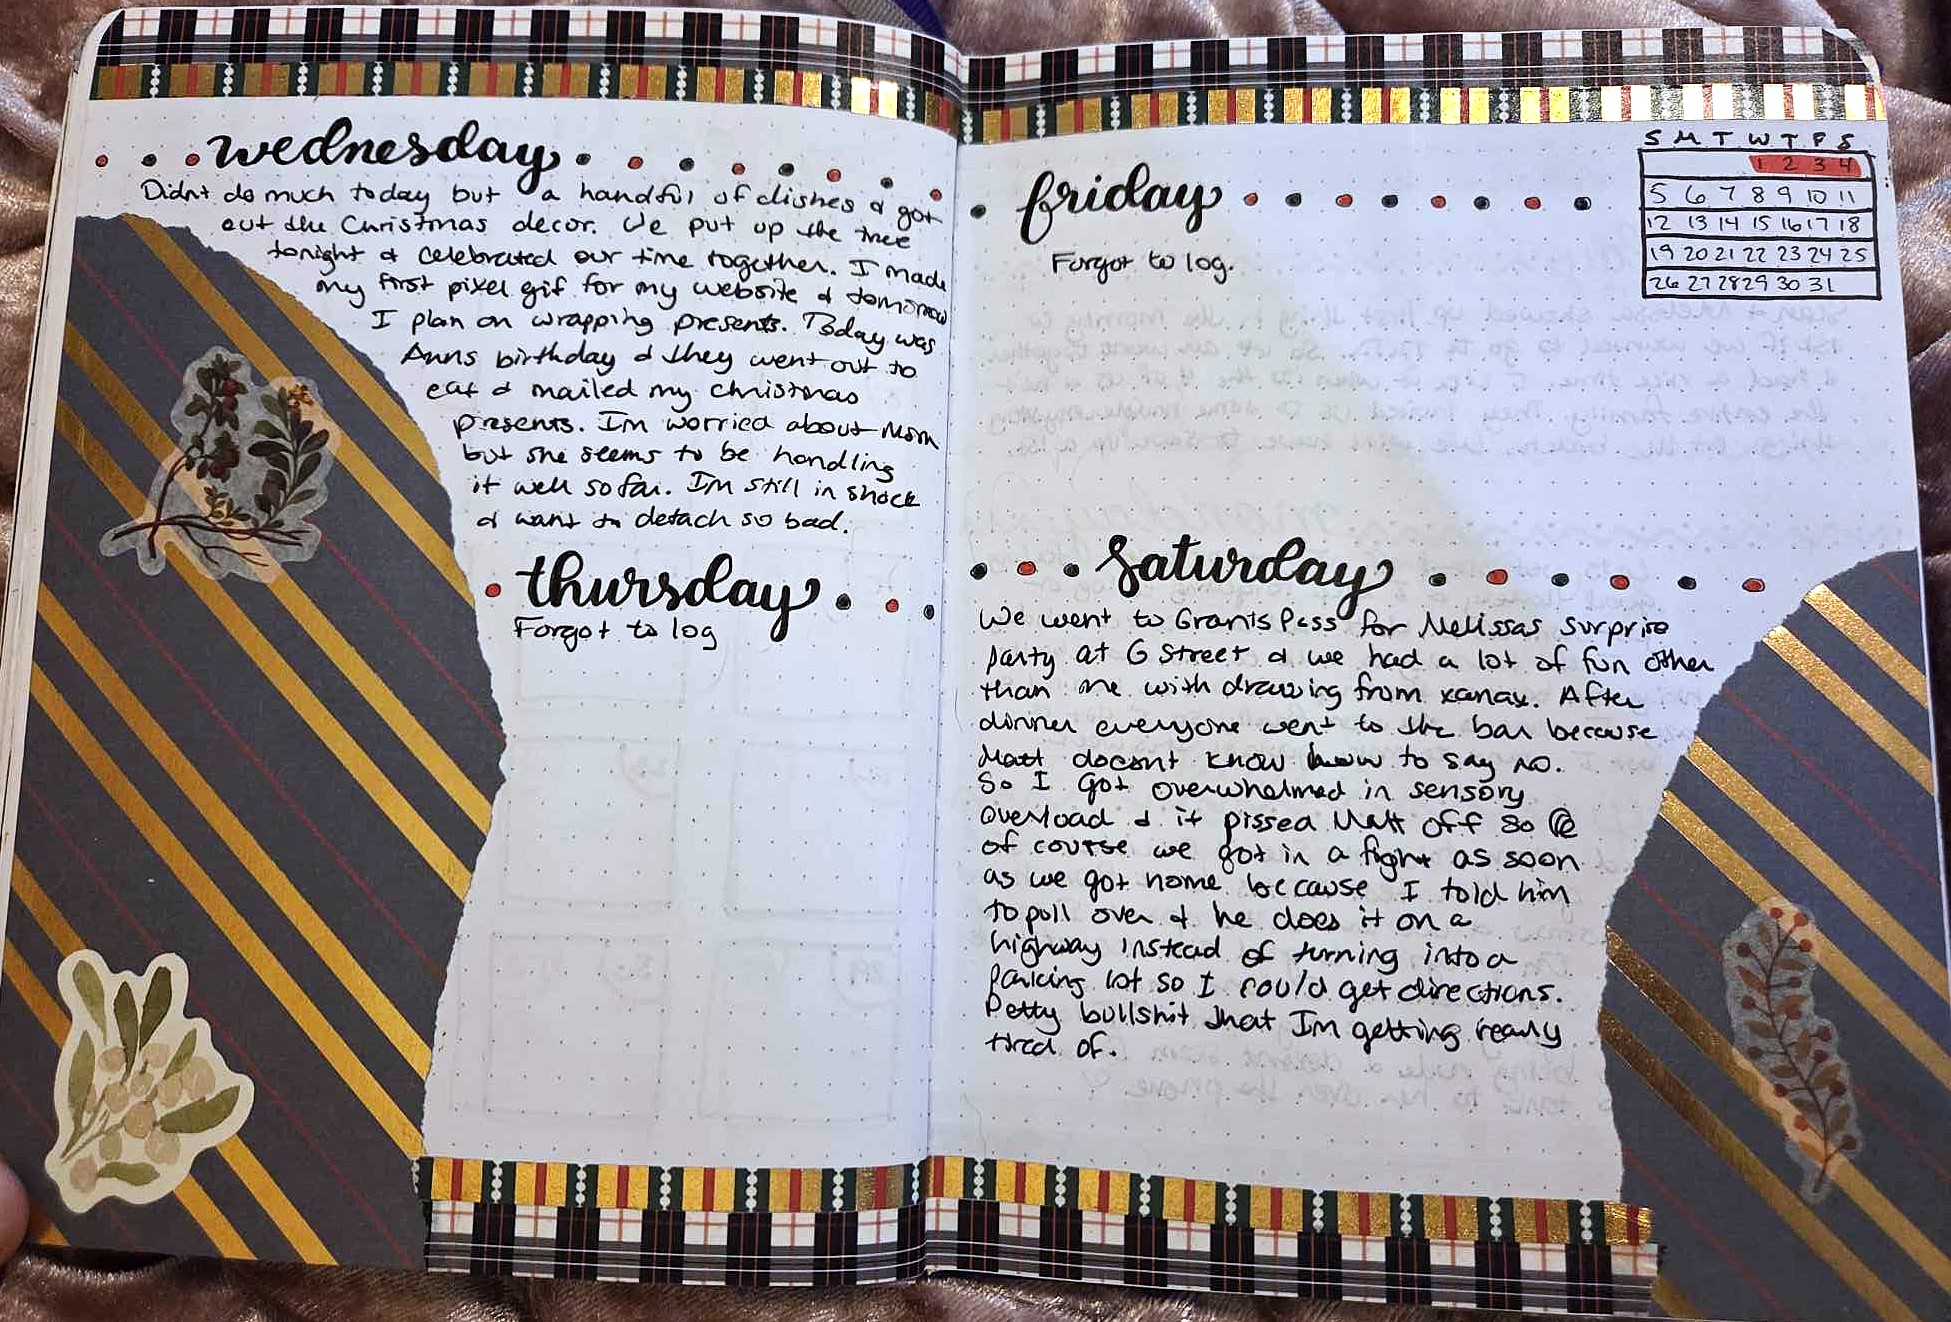 wednesday
Didnt do much today but a handful of dishes & got
out the Christmas decor. We put up the tree
tonight & celebrated our time together. I made
my first pixel gif for my website & tomorrow
I plan on wrapping presents. Today was
Anns birthday & they went out to
eat & mailed my christmas
presents. I'm worried about Mom
but she seems to be handling
it well so far. I'm still in shock
& want to detach so bad.
thursday
Forgot to log
friday
Forgot to log.
S M T W T F S
1 2 3 4
5 6 7 8 9 10 11
12 13 14 15 16 17 18
19 20 21 22 23 24 25
26 27 28 29 30 31
saturday
We went to Grants Pass for Melissas surprise
party at G Street & we had a lot of fun other
than me withdrawing from xanax. After
dinner everyone went to the bar because
Matt doesnt know how to say no.
So I got overwhelmed in sensory
overload & it pissed Matt off so
of course we got in a fight as soon
as we got home because I told him
to pull over & he does it on a
highway instead of turning into a
parking lot so I could get directions.
Petty bullshit that I'm getting really
tired of.